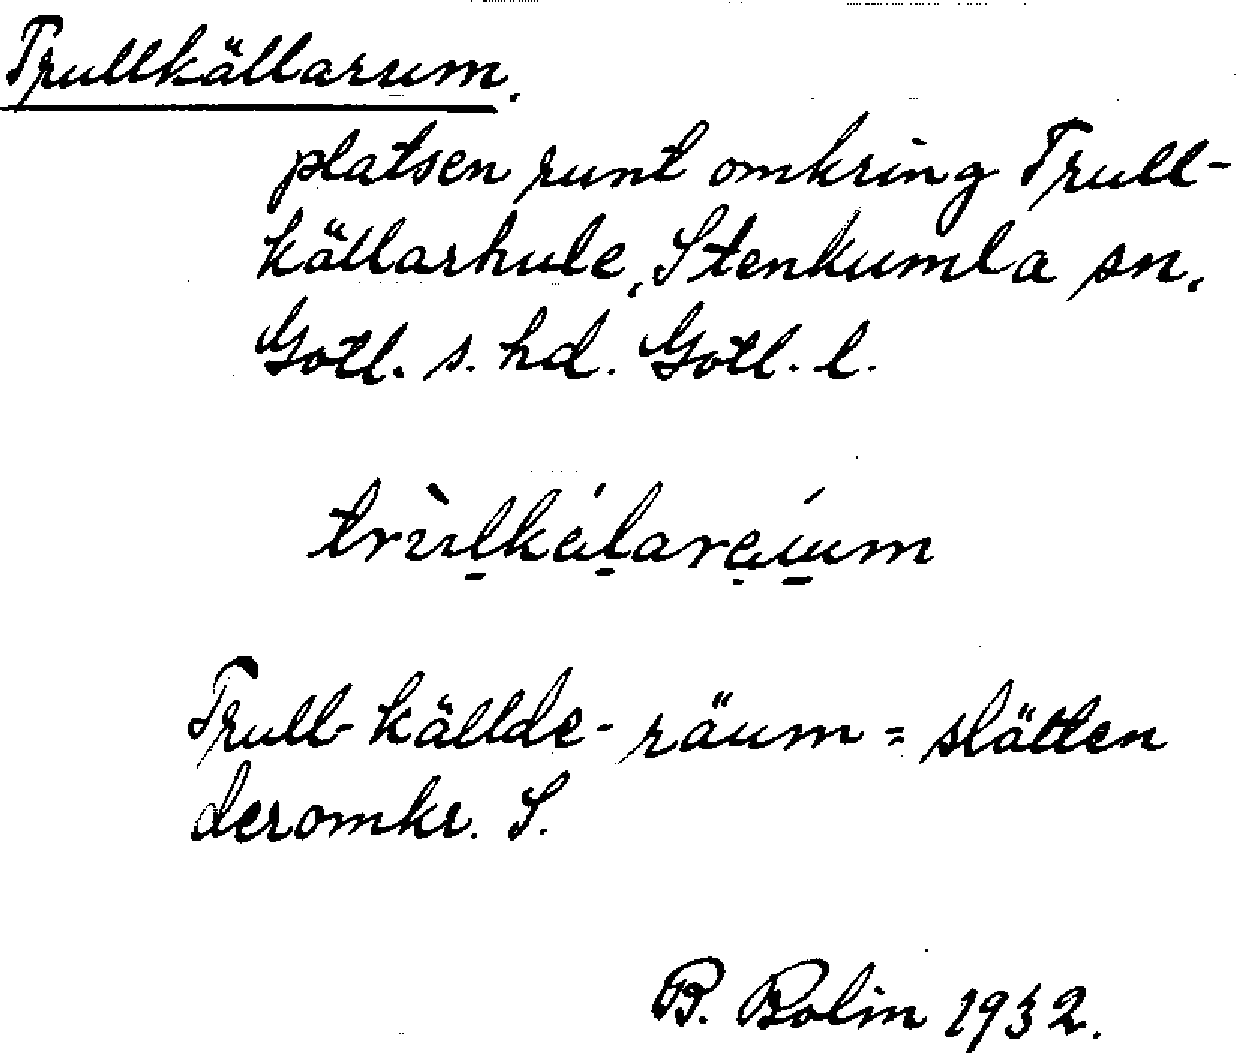 Trullkällarum.
platsen runt omkring Trull-
källarhule, Stenkumla sn.
Gotl. s. hd. Gotl. l.
Trull-källde-räum = slätten
deromkr. S.
B. Bolin 1932.